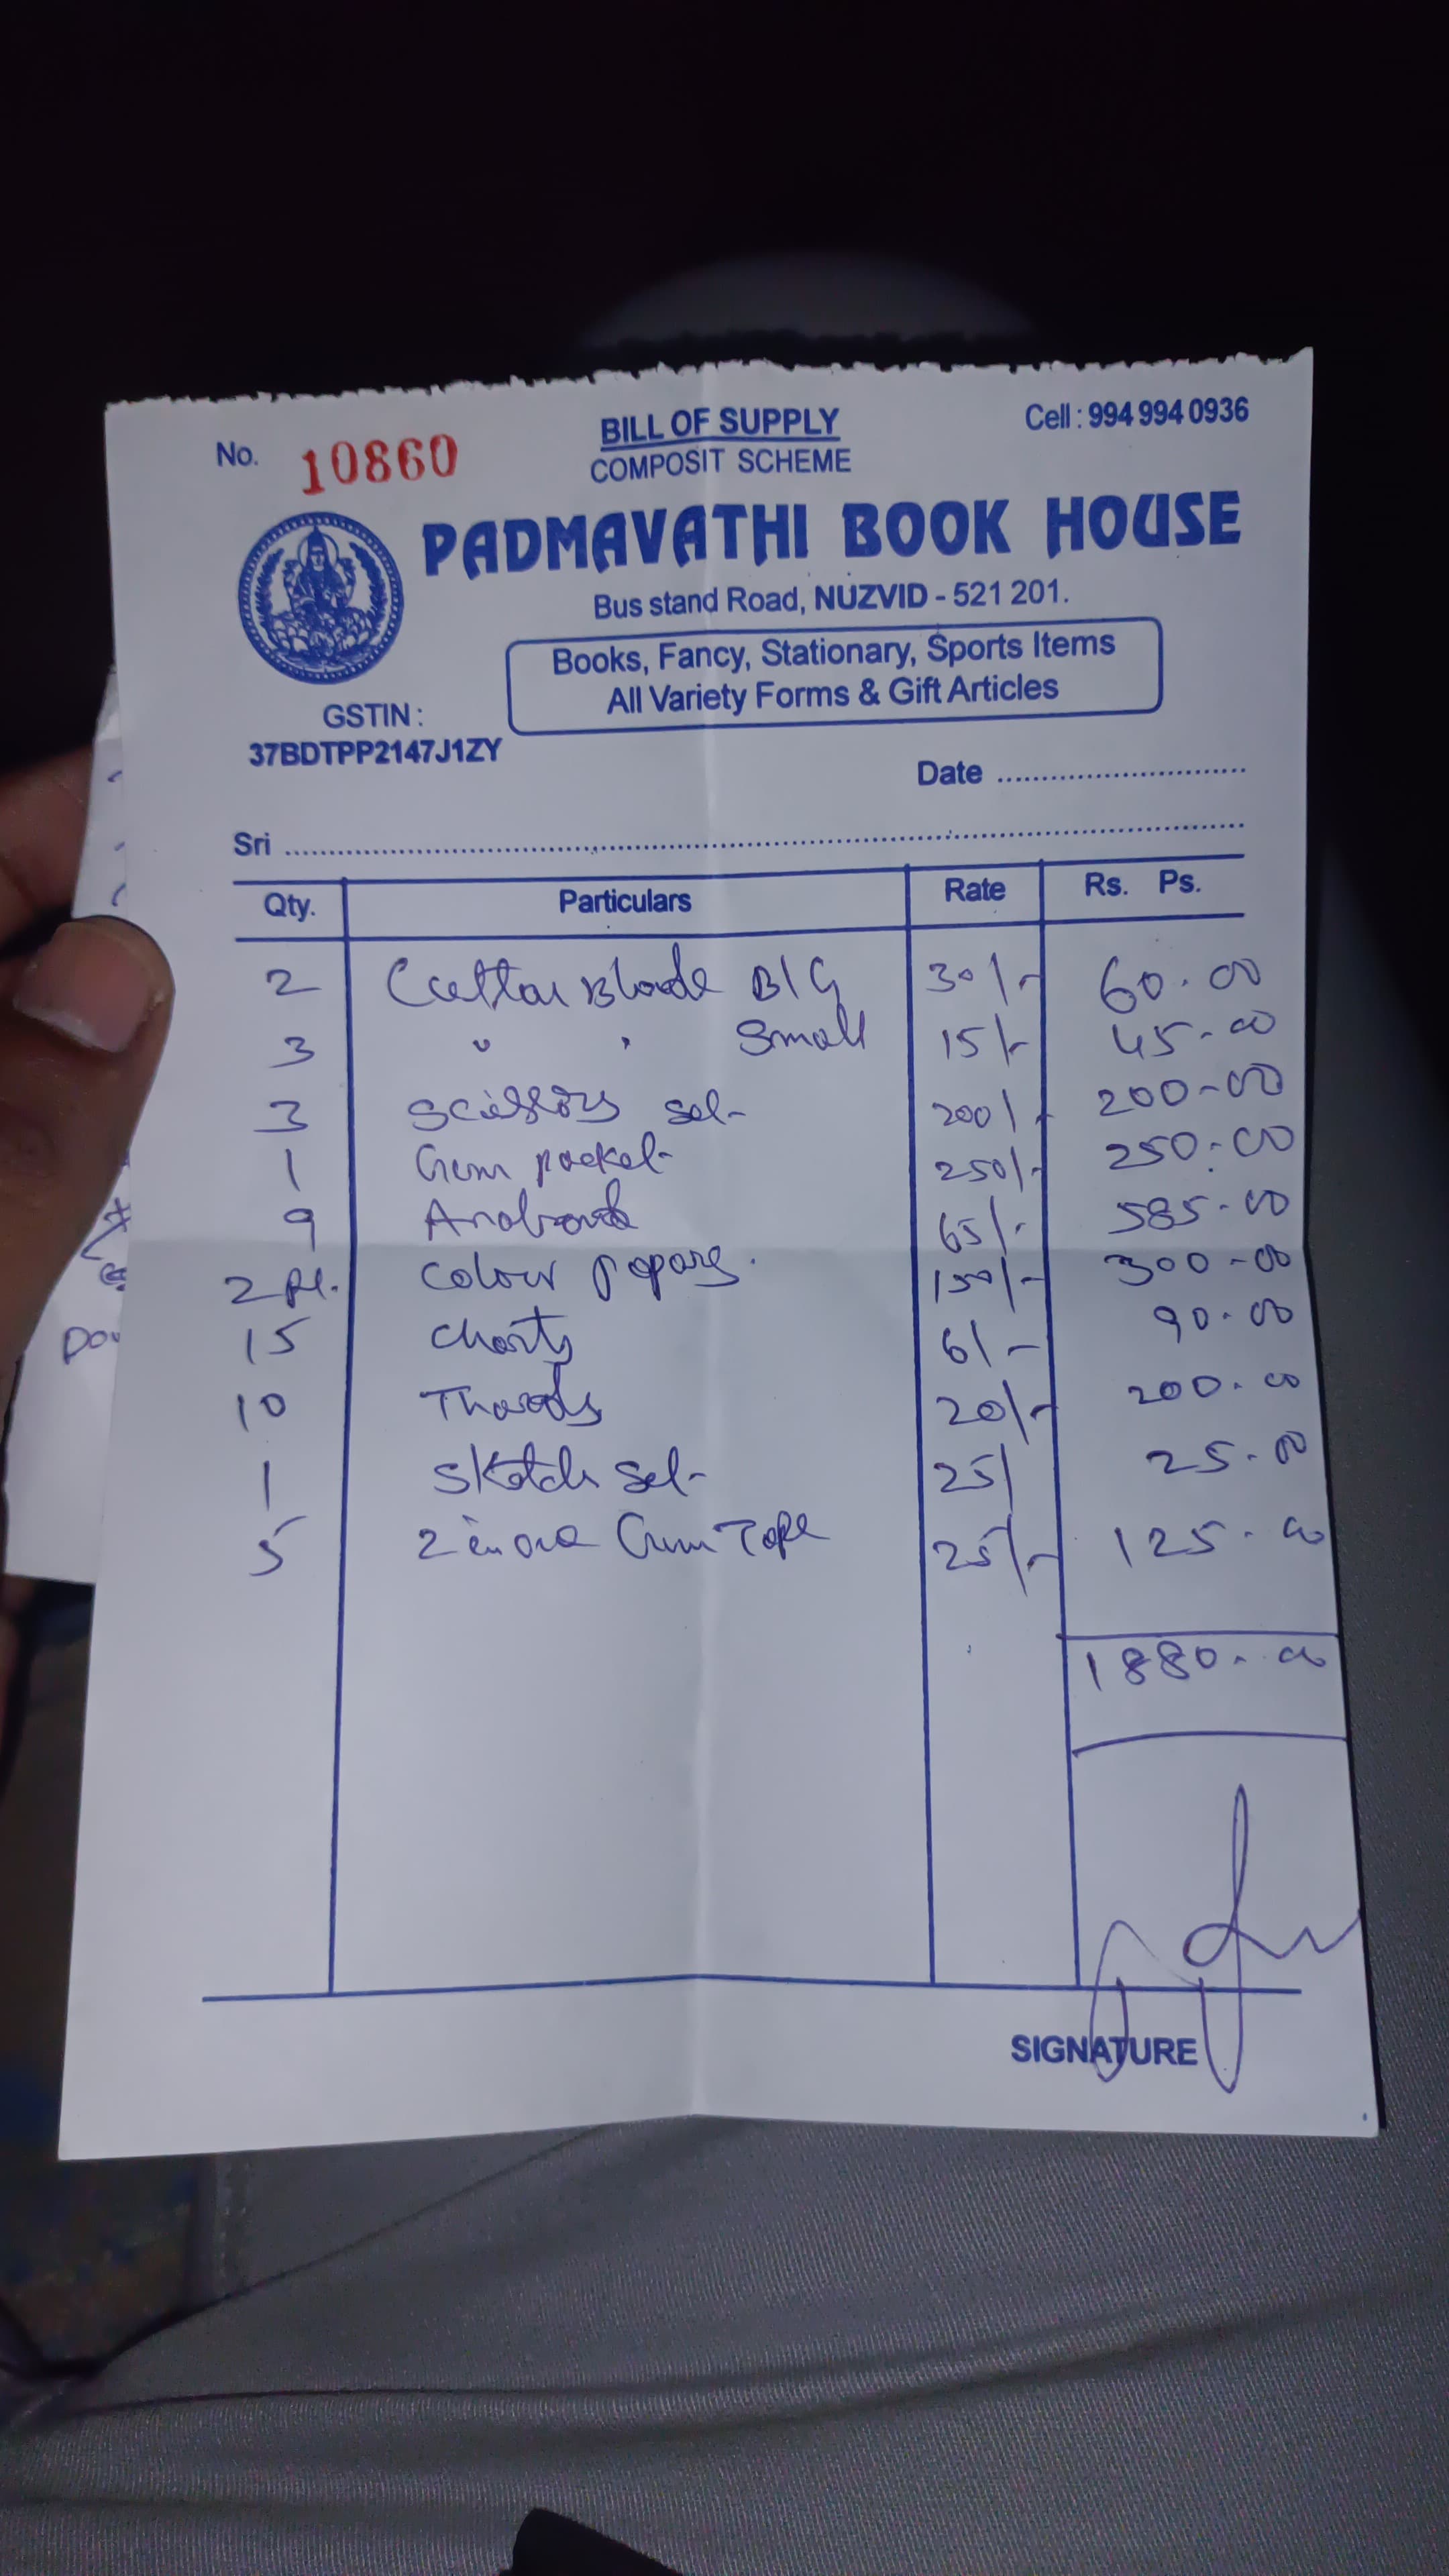 No. 10860
BILL OF SUPPLY
COMPOSIT SCHEME
Cell : 994 994 0936
PADMAVATHI BOOK HOUSE
Bus stand Road, NUZVID - 521 201.
Books, Fancy, Stationary, Sports Items
All Variety Forms & Gift Articles
GSTIN :
37BDTPP2147J1ZY
Date
Sri
Qty. Particulars Rate Rs. Ps.
2 Cuttar Blade BIG 30/- 60.00
3 " " Small 15/- 45-00
3 Scissors set- 200/- 200-00
1 Gum packet- 250/- 250-00
9 65/- 585-00
2 Pl. Colour papars. 150/- 300-00
15 Charts 6/- 90-00
10 Thareds 20/- 200-00
1 Sketch set- 25/ 25-00
5 2 in one Gum Tape 25/- 125-00
1880-00
SIGNATURE